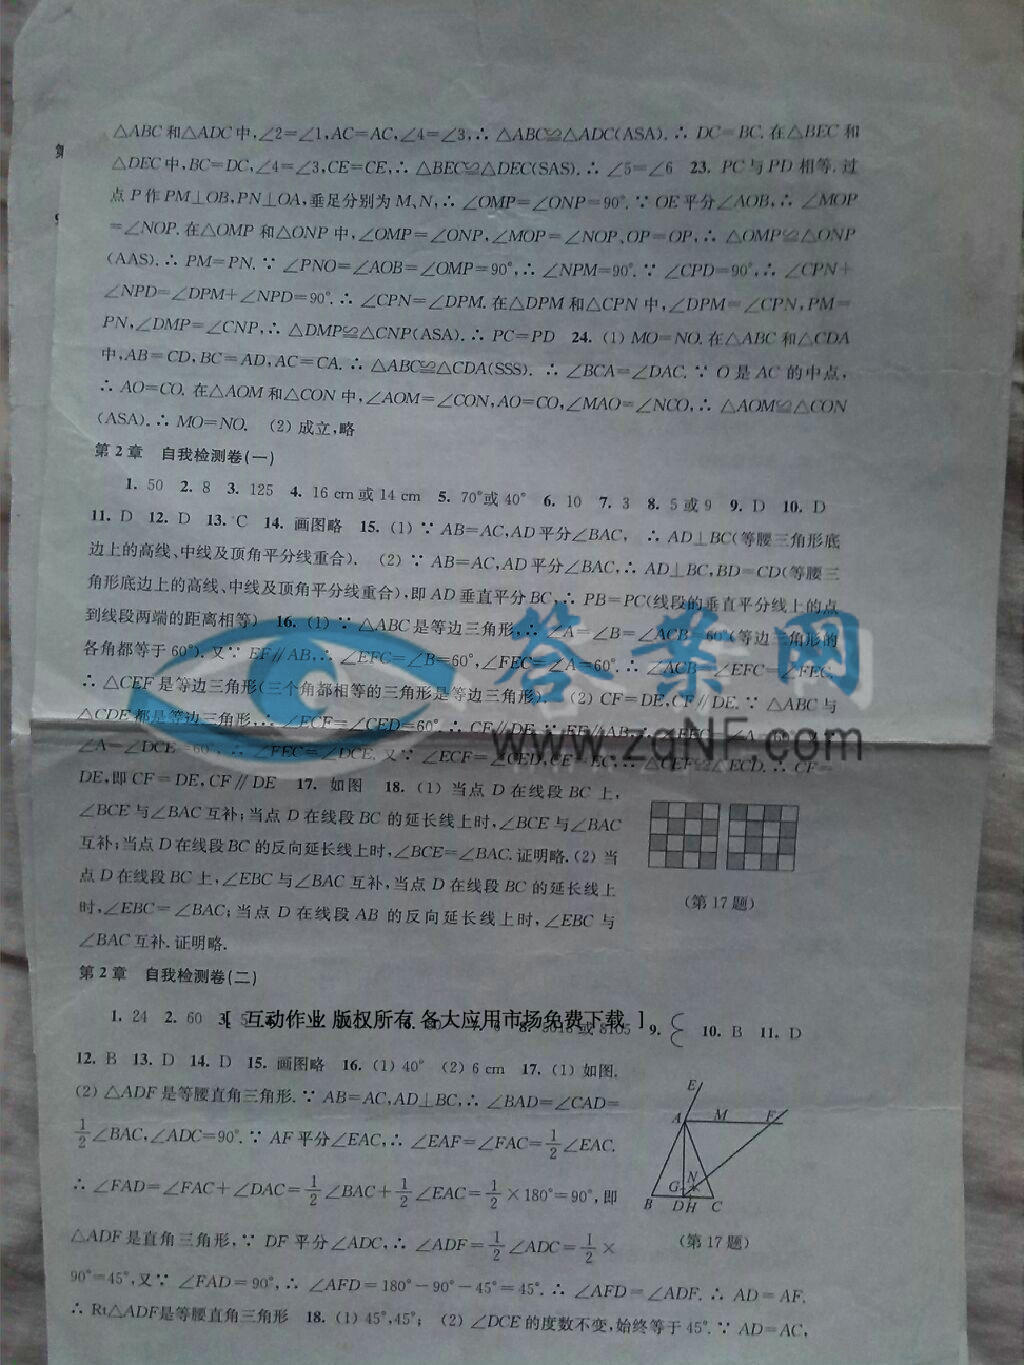 △ABC和△ADC中,∠2=∠1,AC=AC,∠4=∠3,∴ △ABC≌△ADC(ASA).∴ DC=BC.在△BEC和
△DEC中,BC=DC,∠4=∠3,CE=CE,∴ △BEC≌△DEC(SAS).∴ ∠5=∠6 23. PC与PD相等.过
点P作PM⊥OB,PN⊥OA,垂足分别为M、N,∴ ∠OMP=∠ONP=90°.∵ OE平分∠AOB,∴ ∠MOP
=∠NOP.在△OMP和△ONP中,∠OMP=∠ONP,∠MOP=∠NOP、OP=OP,∴ △OMP≌△ONP
(AAS).∴ PM=PN.∵ ∠PNO=∠AOB=∠OMP=90°,∴ ∠NPM=90°.∵ ∠CPD=90°,∴ ∠CPN+
∠NPD=∠DPM+∠NPD=90°.∴ ∠CPN=∠DPM.在△DPM和△CPN中,∠DPM=∠CPN,PM=
PN,∠DMP=∠CNP,∴ △DMP≌△CNP(ASA).∴ PC=PD 24. (1) MO=NO.在△ABC和△CDA
中,AB=CD,BC=AD,AC=CA.∴ △ABC≌△CDA(SSS). ∴ ∠BCA=∠DAC.∵ O是AC的中点,
∴ AO=CO. 在△AOM和△CON中,∠AOM=∠CON,AO=CO,∠MAO=∠NCO,∴ △AOM≌△CON
(ASA).∴ MO=NO. (2) 成立,略
第2章 自我检测卷(一)
1. 50 2. 8 3. 125 4. 16 cm或14 cm 5. 70°或40° 6. 10 7. 3 8. 5或9 9. D 10. D
11. D 12. D 13. C 14. 画图略 15. (1) ∵ AB=AC,AD平分∠BAC, ∴ AD⊥BC(等腰三角形底
边上的高线、中线及顶角平分线重合). (2) ∵ AB=AC,AD平分∠BAC,∴ AD⊥BC,BD=CD(等腰三
角形底边上的高线、中线及顶角平分线重合),即AD垂直平分BC,∴ PB=PC(线段的垂直平分线上的点
到线段两端的距离相等) 16. (1) ∵ △ABC是等边三角形,∴ ∠A=∠B=∠ACB=60°(等边三角形的
各角都等于60°).又∵ EF∥AB,∴ ∠EFC=∠B=60°,∠FEC=∠A=60°.∴ ∠ACB=∠EFC=∠FEC.
∴ △CEF是等边三角形(三个角都相等的三角形是等边三角形). (2) CF=DE,CF∥DE.∵ △ABC与
△CDE都是等边三角形,∴ ∠ECF=∠CED=60°.∴ CF∥DE.
∠A=∠DCE=60°,∴ ∠FEC=∠DCE.又∵ ∠ECF=∠CED,CE=EC,∴ △CEF≌△ECD.∴ CF=
DE,即CF=DE,CF∥DE 17. 如图 18. (1) 当点D在线段BC上,
∠BCE与∠BAC互补;当点D在线段BC的延长线上时,∠BCE与∠BAC
互补;当点D在线段BC的反向延长线上时,∠BCE=∠BAC.证明略.(2) 当
点D在线段BC上,∠EBC与∠BAC互补,当点D在线段BC的延长线上
时,∠EBC=∠BAC;当点D在线段AB的反向延长线上时,∠EBC与
∠BAC互补.证明略.
(第17题)
第2章 自我检测卷(二)
1. 24 2. 60 9. 10. B 11. D
[ 互动作业 版权所有 各大应用市场免费下载 ]
12. B 13. D 14. D 15. 画图略 16. (1) 40° (2) 6 cm 17. (1) 如图.
(2) △ADF是等腰直角三角形.∵ AB=AC,AD⊥BC,∴ ∠BAD=∠CAD=
1/2∠BAC,∠ADC=90°.∵ AF平分∠EAC,∴ ∠EAF=∠FAC=1/2∠EAC.
∴ ∠FAD=∠FAC+∠DAC=1/2∠BAC+1/2∠EAC=1/2×180°=90°,即
△ADF是直角三角形,∵ DF平分∠ADC,∴ ∠ADF=1/2∠ADC=1/2×
90°=45°,又∵ ∠FAD=90°,∴ ∠AFD=180°-90°-45°=45°.∴ ∠AFD=∠ADF.∴ AD=AF.
∴ Rt△ADF是等腰直角三角形 18. (1) 45°,45°; (2) ∠DCE的度数不变,始终等于45°.∵ AD=AC,
E
A M F
G N
B D H C
(第17题)
答案网
www.zqNF.com